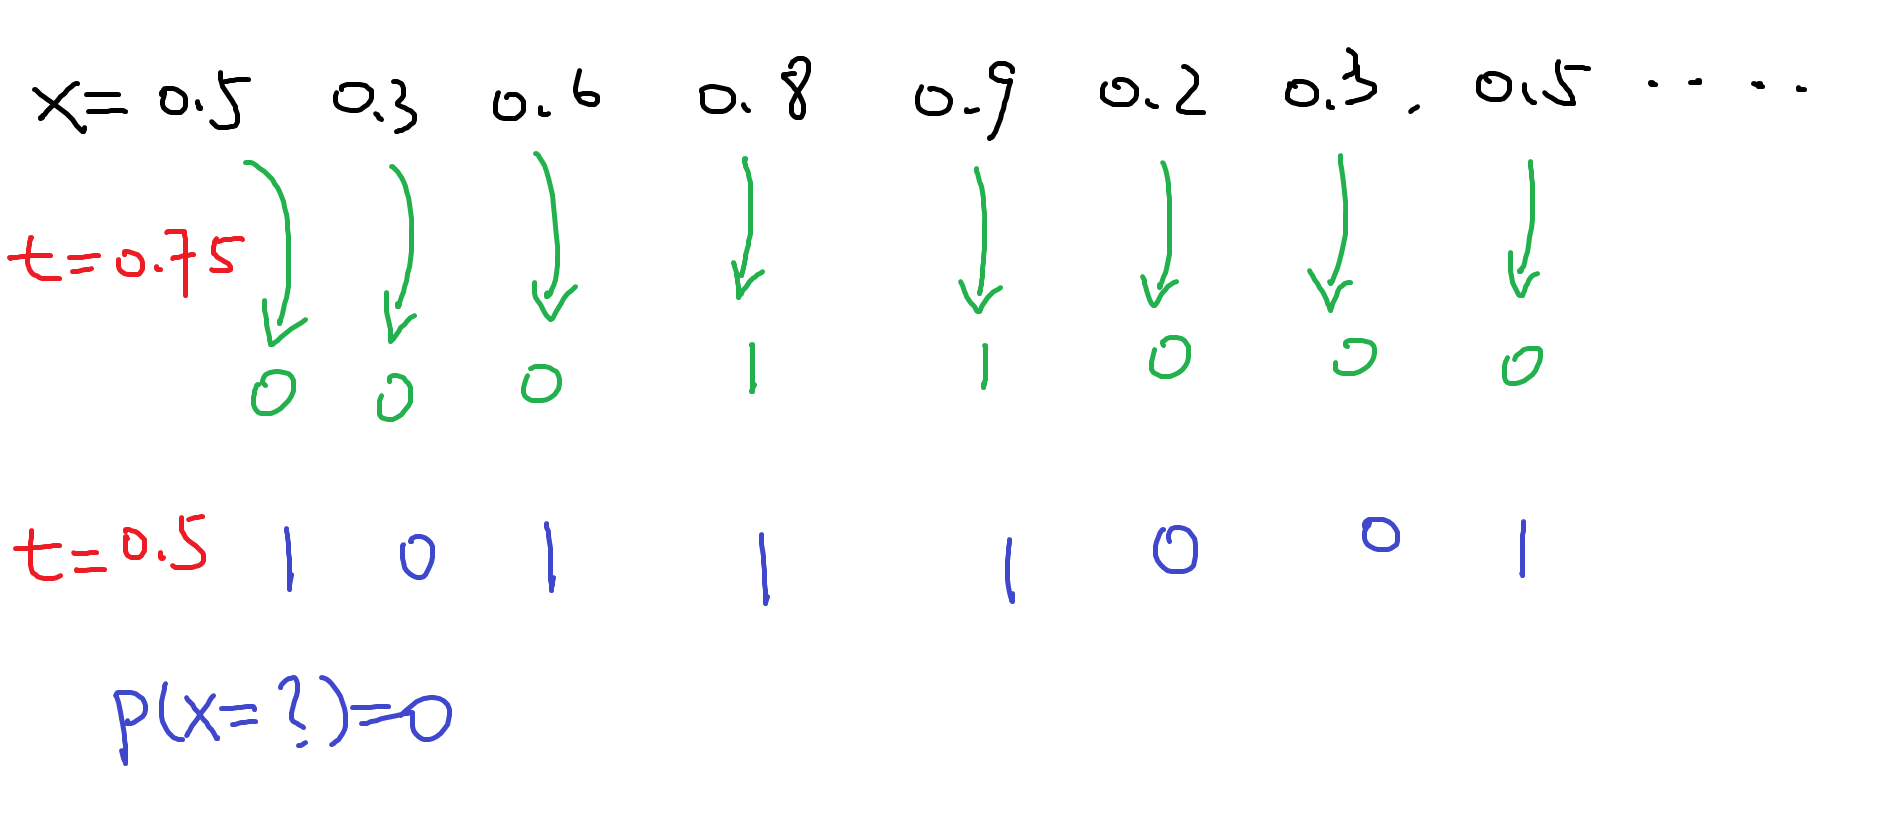 x= 0.5 0.3 0.6 0.8 0.9 0.2 0.3. 0.5 .....
t=0.75
0 0 0 1 1 0 0 0
t=0.5 1 0 1 1 1 0 0 1
P(x=?)=0